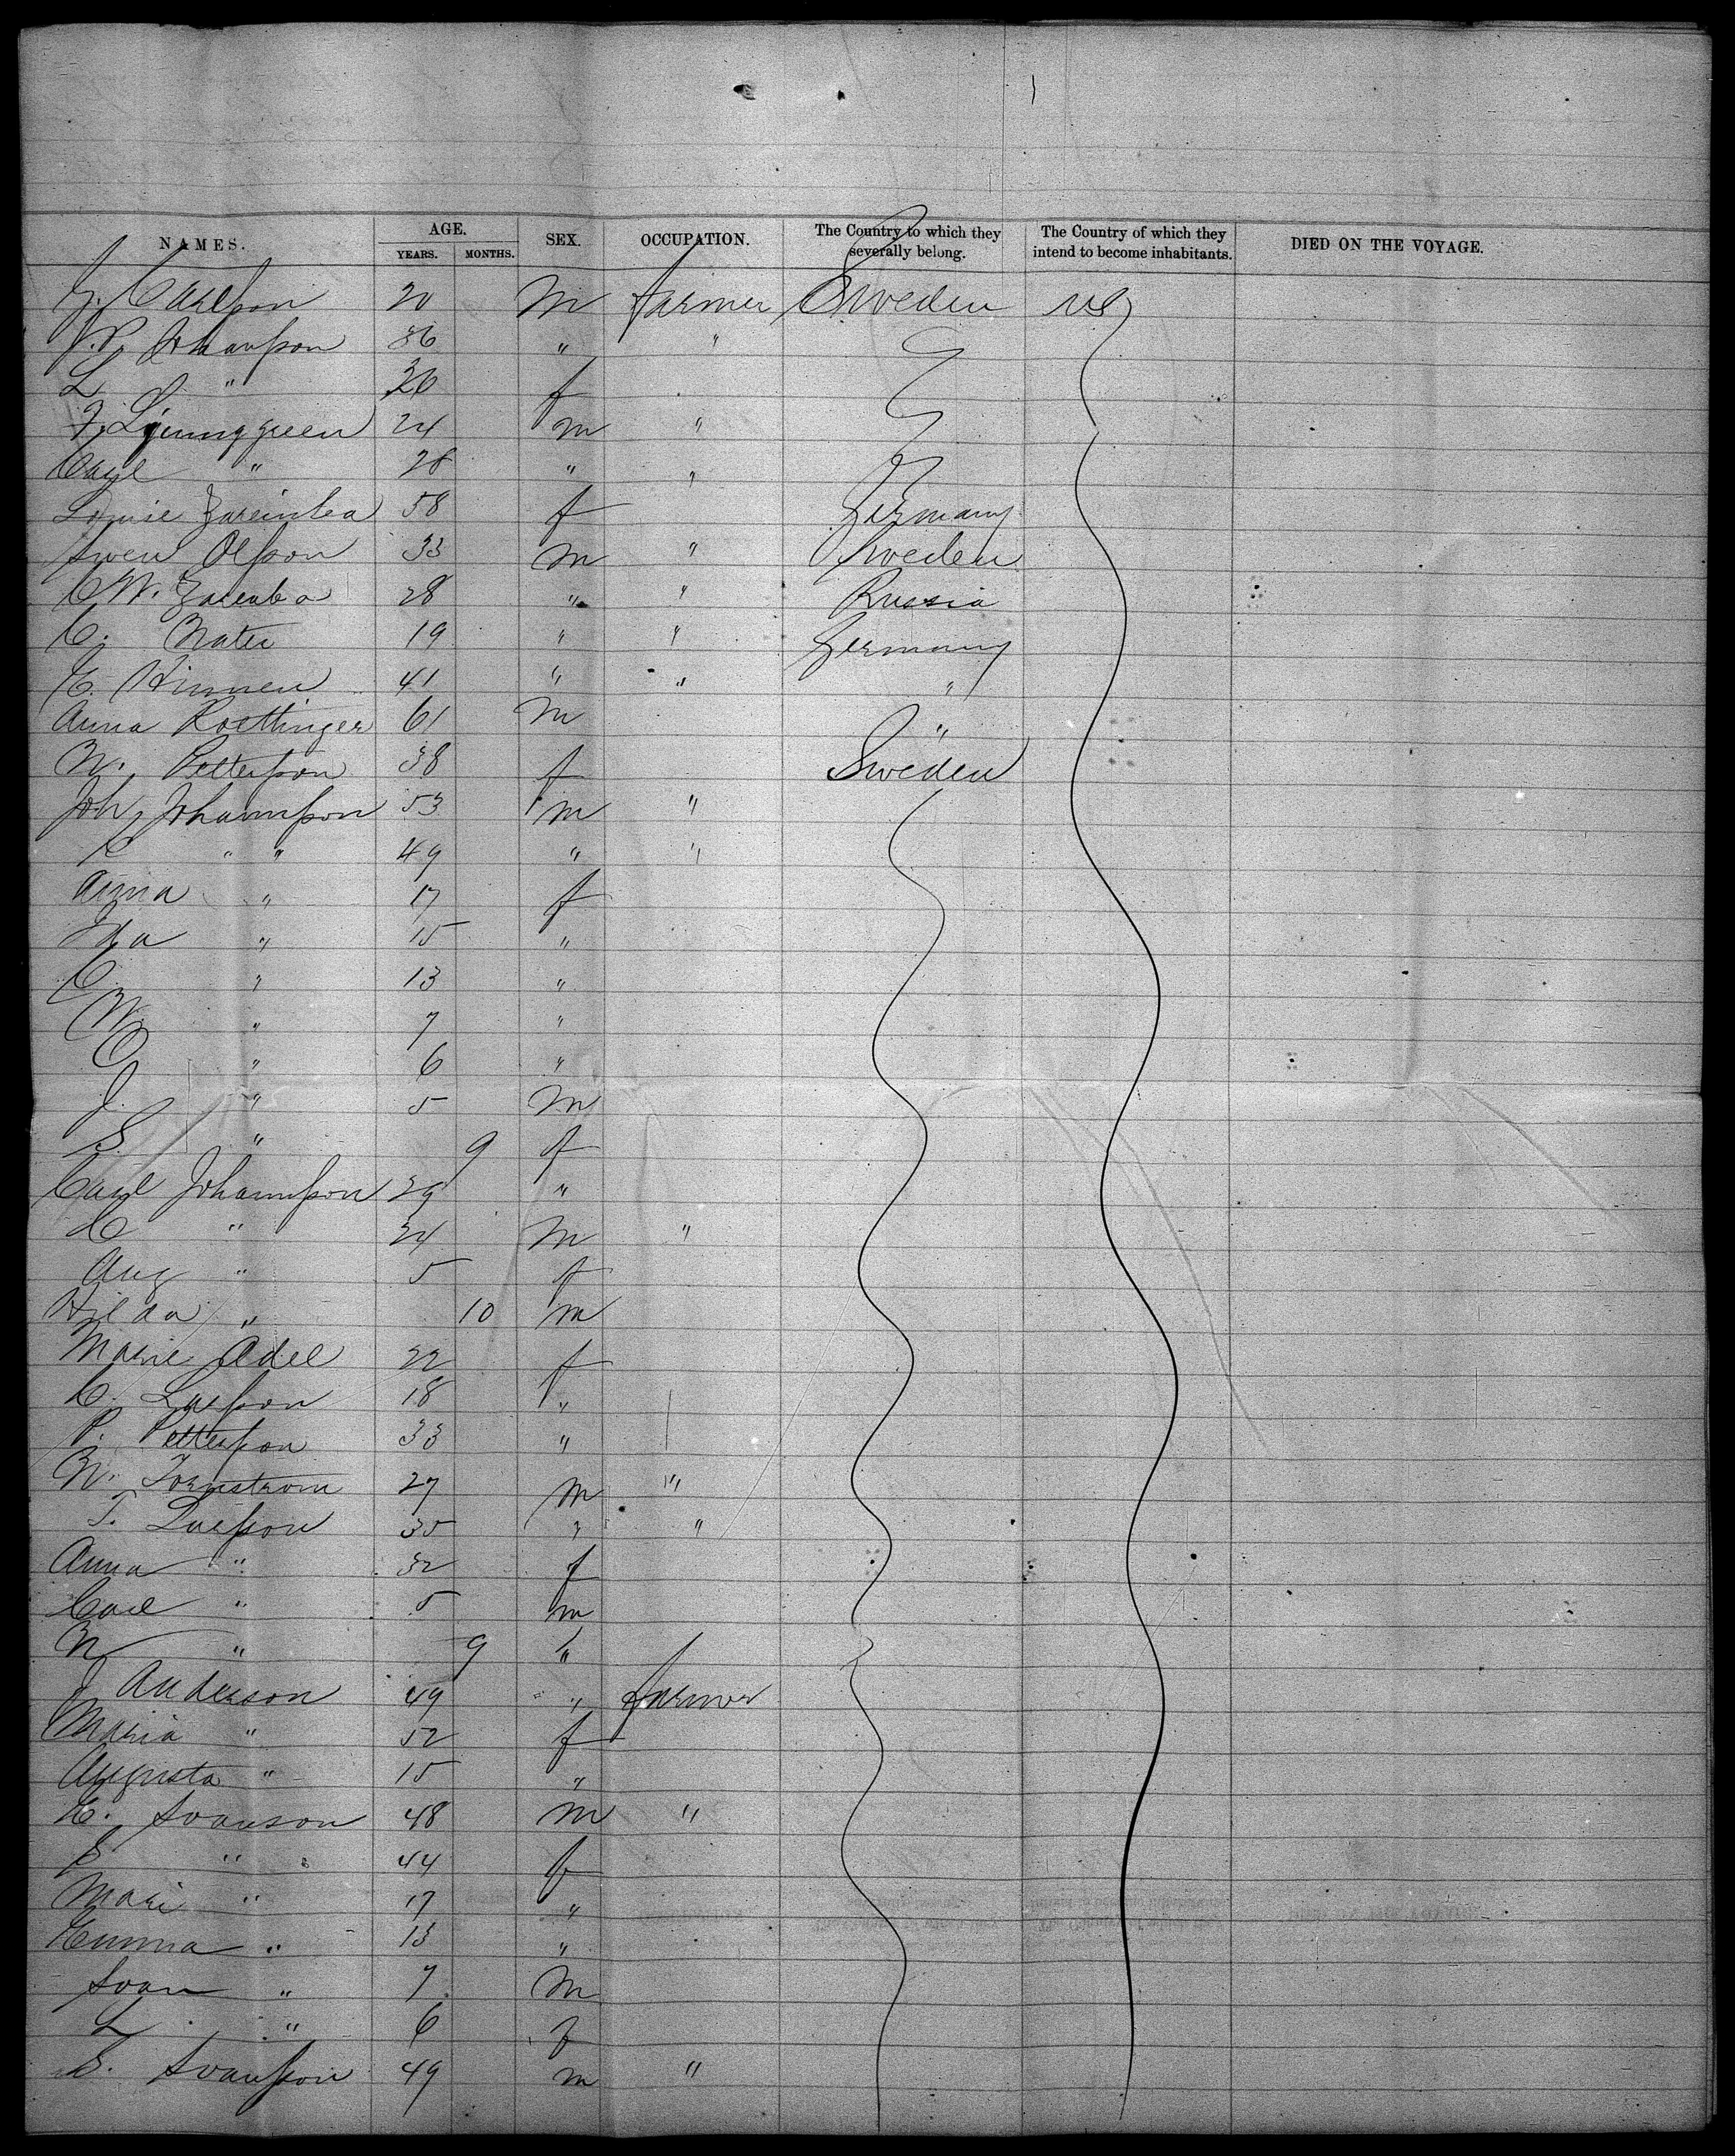 NAMES. AGE. YEARS. MONTHS. SEX. OCCUPATION. The Country to which they severally belong. The Country of which they intend to become inhabitants. DIED ON THE VOYAGE.
J. Carlsson 20 m farmer Sweden US
J.P. Johansson 36 " "
L " 26 f
F. Ljunggreen 24 m "
Carl " 28 " "
Louise 58 f Germany
Swen Olsson 33 m " Sweden
C.W. Zaremba 28 " " Russia
C. 19 " " Germany
41 " " "
Anna Roettinger 61 m "
Pettersson 38 f Sweden
Joh. Johannsson 53 m "
" " 49 " "
Anna " 17 f
Ida " 15 "
C. " 13 "
W. " 7 "
O " 6 "
J. " 5 m
S. " 9 f
Carl Johannsson 29 "
C " 24 m "
Aug " 5 f
Hilda " 10 m
Marie Adel 22 f
C. Larsson 18 "
P. Pettersson 33 "
Tornstrom 27 m "
T. Larsson 35 " "
Anna " 32 f
Carl " 5 m
N " 9 "
J Anderson 49 " farmer
Maria " 52 f
Augusta " 15 "
C. Svanson 48 m "
" 44 f
Mari " 17 "
Emma " 13 "
Svan " 7 m
L " 6 f
S. Svansson 49 m "